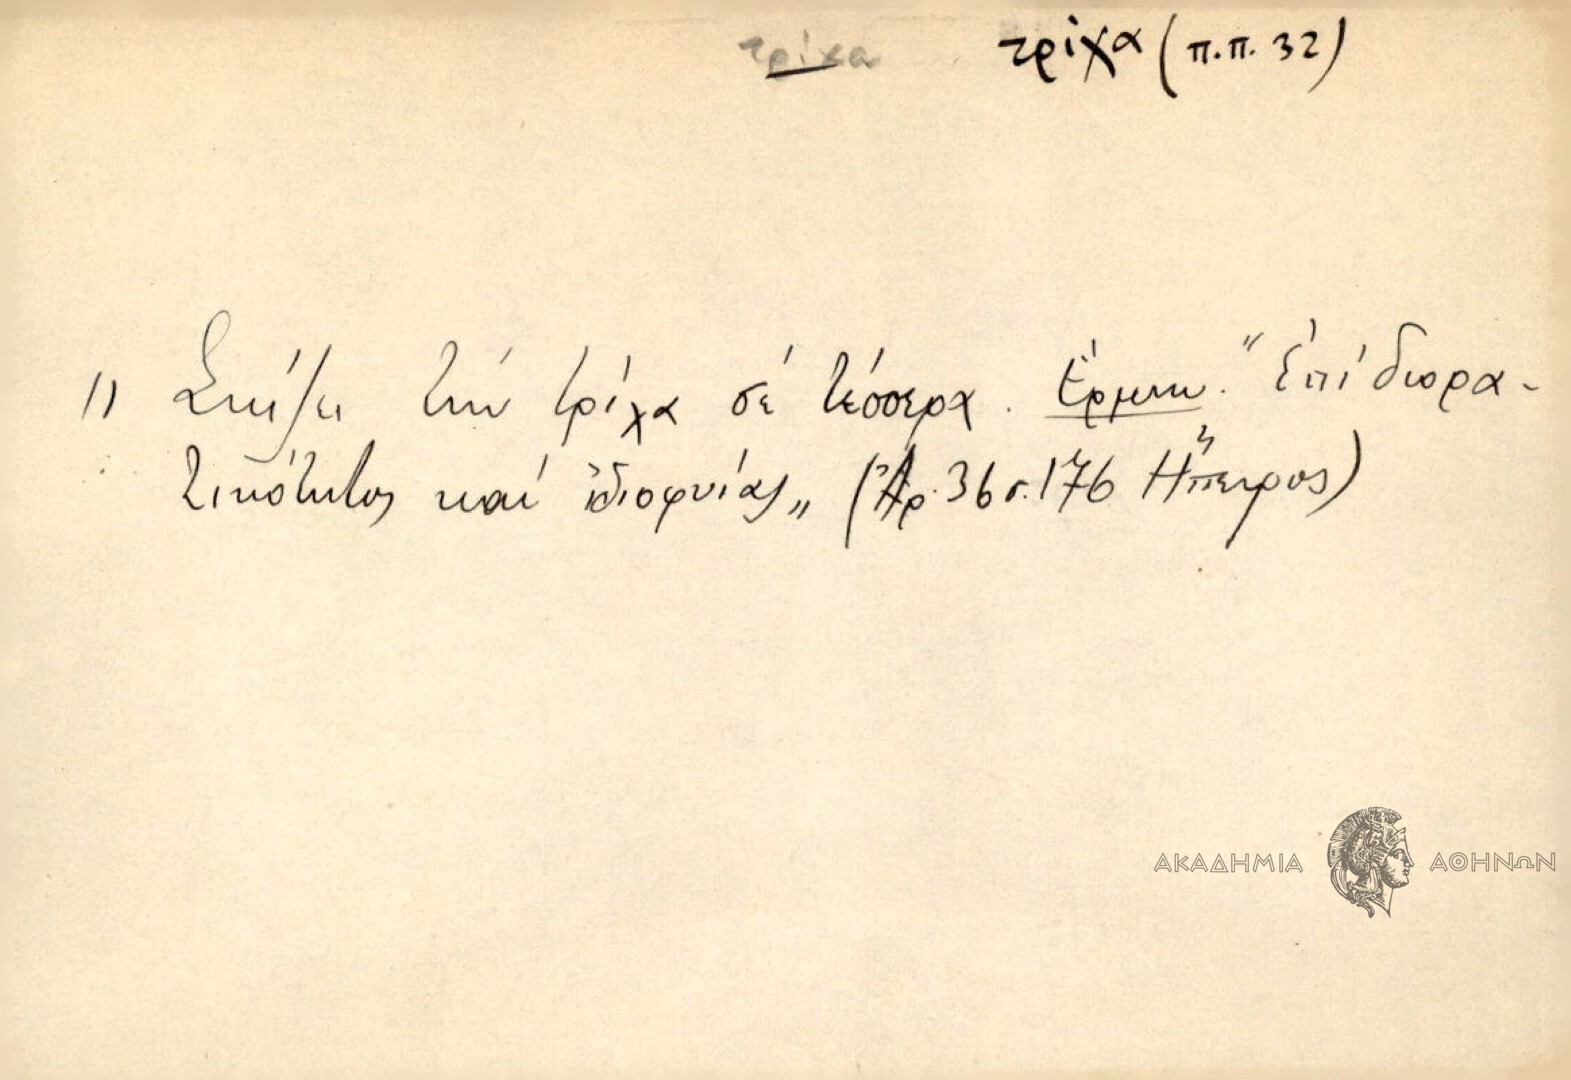 τρίχα τρίχα (π.π. 32)
1) Σκίζει τήν τρίχα σέ τέσσερα. Ἑρμην. "Ἐπί διορα-
τικότητος καί ἰδιοφυίας„ (Ἀρ. 36 σ. 176 Ἤπειρος)
ΑΚΑΔΗΜΙΑ ΑΘΗΝΩΝ